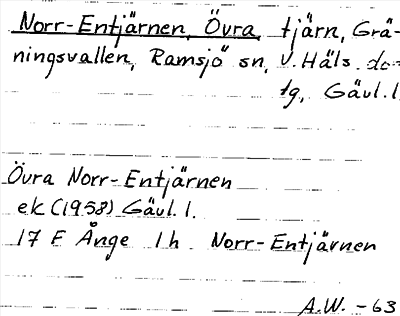 Norr-Entjärnen, Övra, tjärn, Grä-
ningsvallen, Ramsjö sn, V. Häls. do-
tg, Gävl. l.
Övra Norr-Entjärnen
ek (1958) Gävl. l.
17 F Ånge 1h Norr-Entjärnen
A.W. - 63